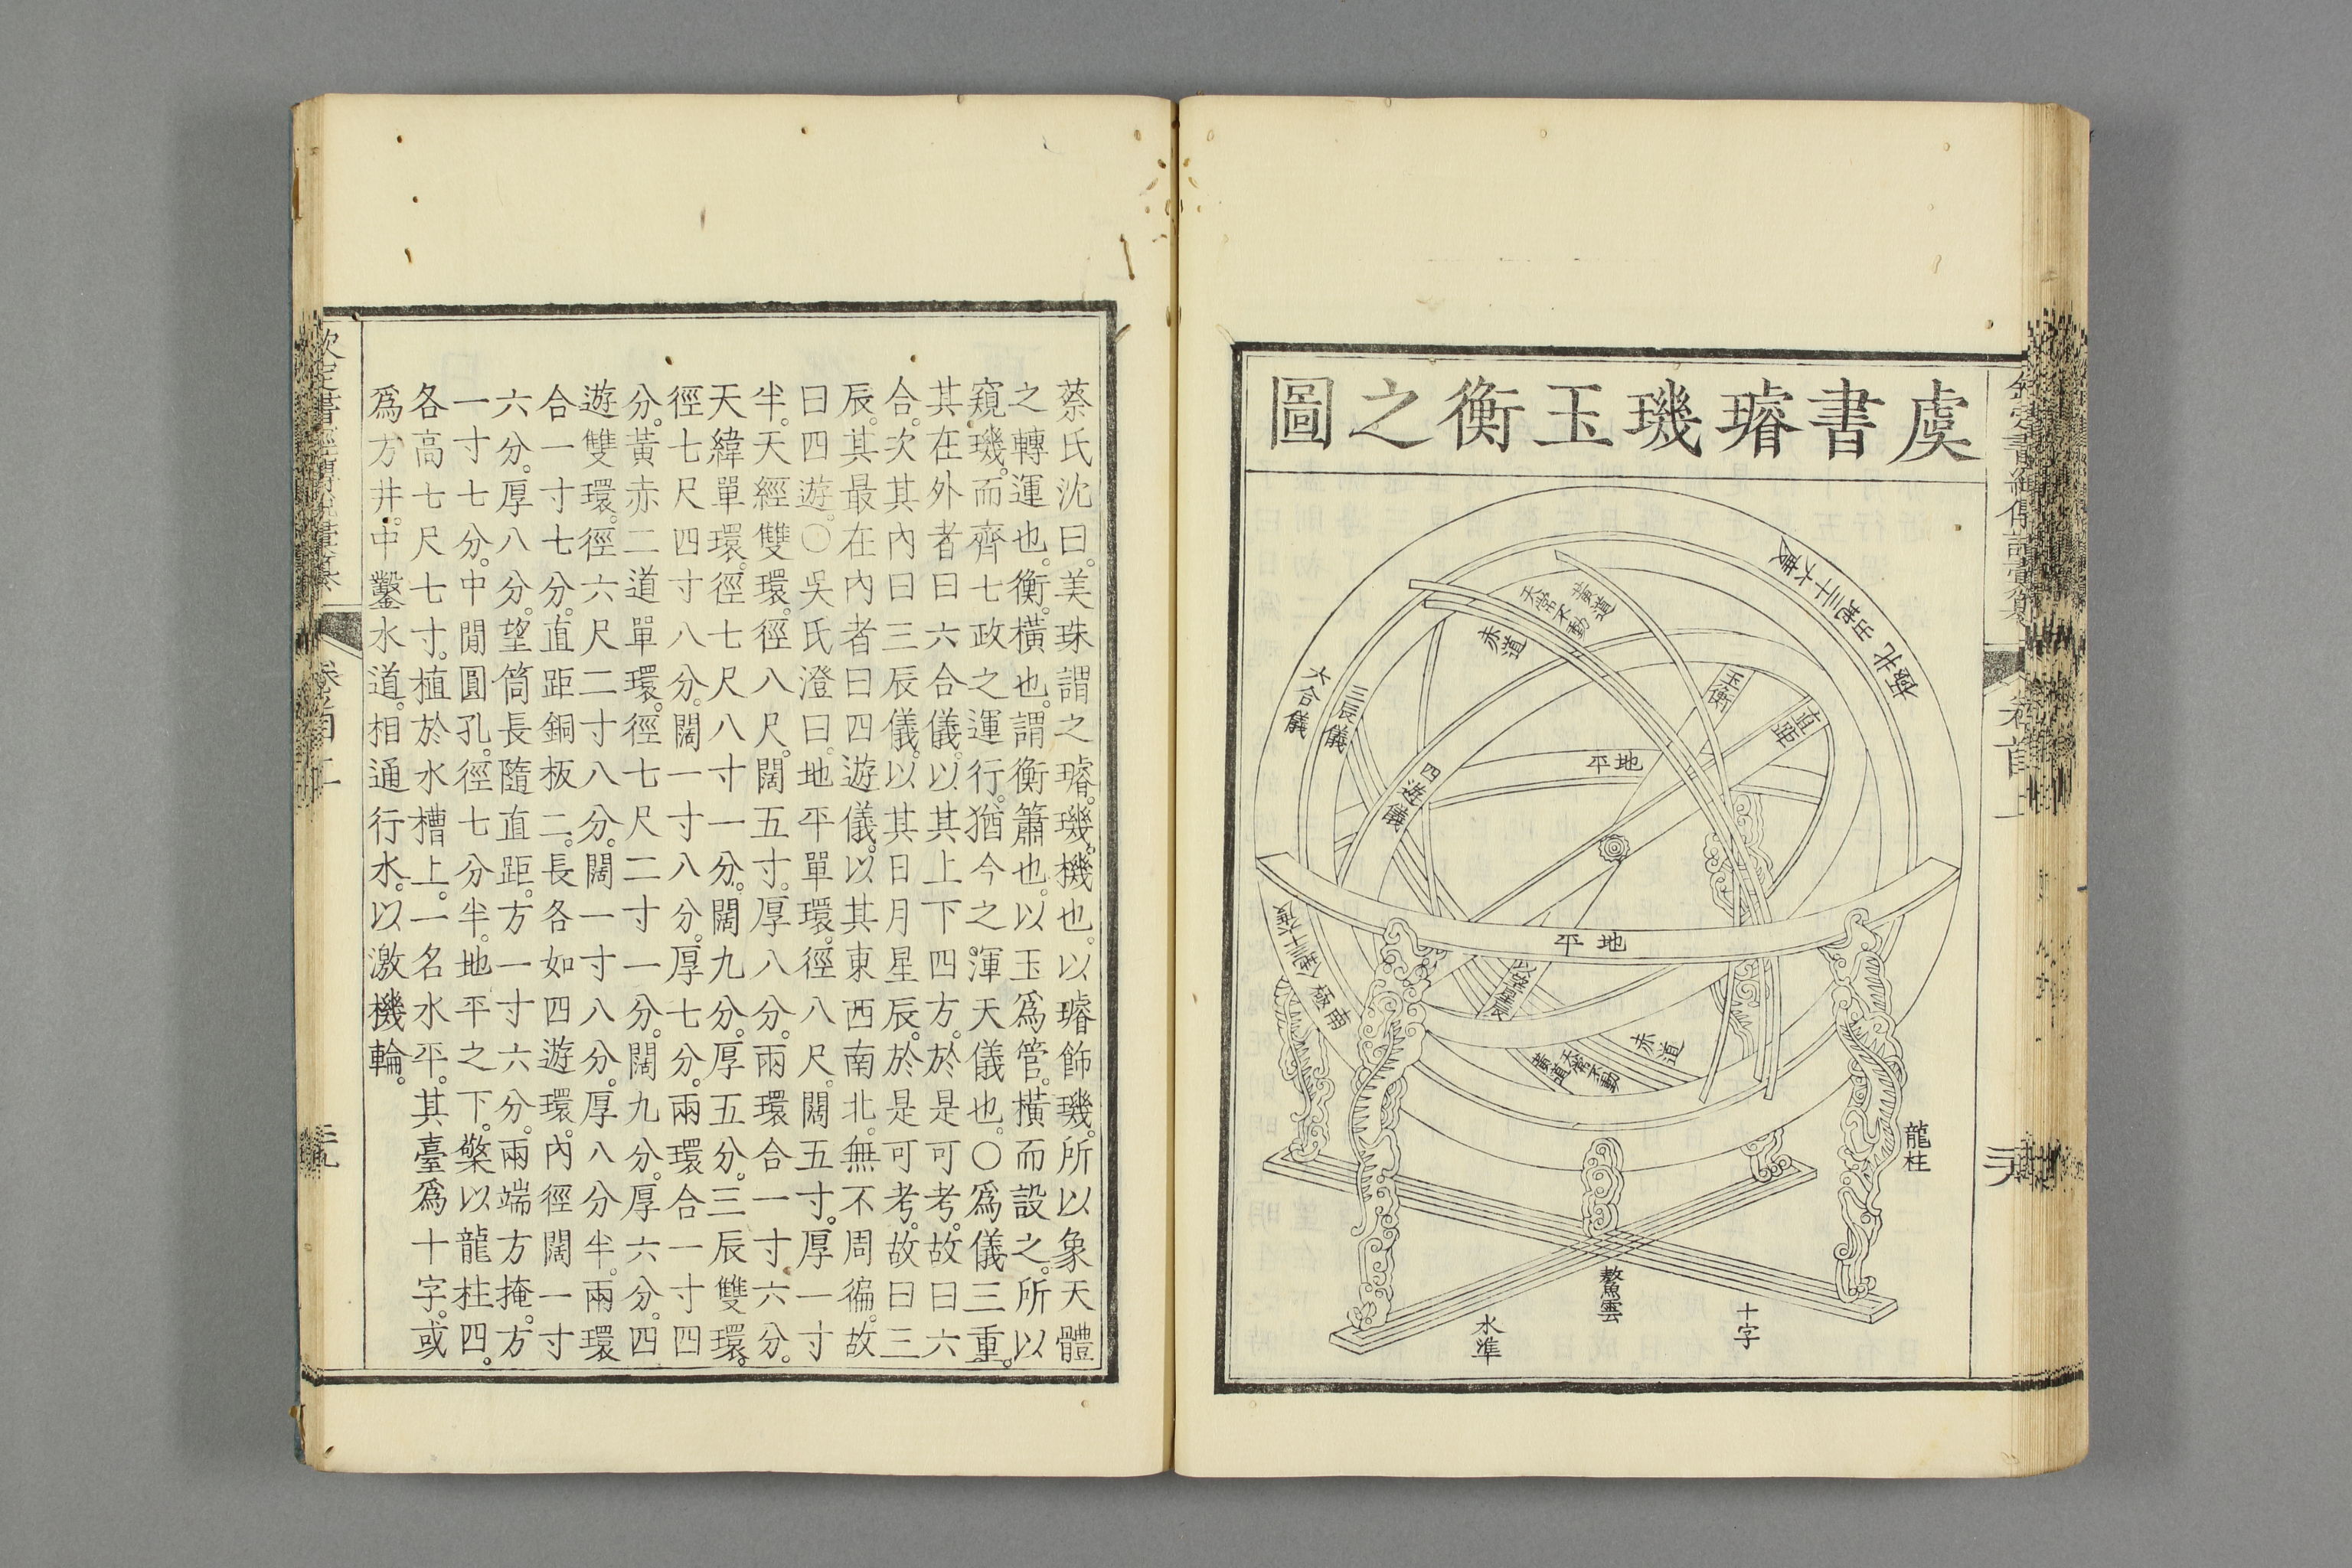 虞書璿璣玉衡之圖
北極出地三十六度
黃道
天常不動
赤道
六合儀
三辰儀
四遊儀
玉衡
直距
地平
地平
南極入地三十六度
赤道
天常不動
黃道
龍柱
鰲魚雲
十字
水準
蔡氏沈曰。美珠謂之璿。璣。機也。以璿飾璣。所以象天體
之轉運也。衡。橫也。謂衡簫也。以玉爲管。橫而設之。所以
窺璣。而齊七政之運行。猶今之渾天儀也。〇爲儀三重。
其在外者曰六合儀。以其上下四方。於是可考。故曰六
合。次其內曰三辰儀。以其日月星辰。於是可考。故曰三
辰。其最在內者曰四遊儀。以其東西南北。無不周徧。故
曰四遊。〇吳氏澄曰。地平單環。徑八尺。闊五寸。厚一寸
半。天經雙環。徑八尺。闊五寸。厚八分。兩環合一寸六分。
天緯單環。徑七尺八寸一分。闊九分。厚五分。三辰雙環。
徑七尺四寸八分。闊一寸八分。厚七分。兩環合一寸四
分。黃赤二道單環。徑七尺二寸一分。闊九分。厚六分。四
遊雙環。徑六尺二寸八分。闊一寸八分。厚八分半。兩環
合一寸七分。直距銅板二。長各如四遊環。內徑闊一寸
六分。厚八分。望筒長隨直距。方一寸六分。兩端方掩。方
一寸七分。中閒圓孔。徑七分半。地平之下。擎以龍柱四。
各高七尺七寸。植於水槽上。一名水平。其臺爲十字。或
爲方井。中鑿水道。相通行水。以激機輪。
欽定書經傳說彙纂